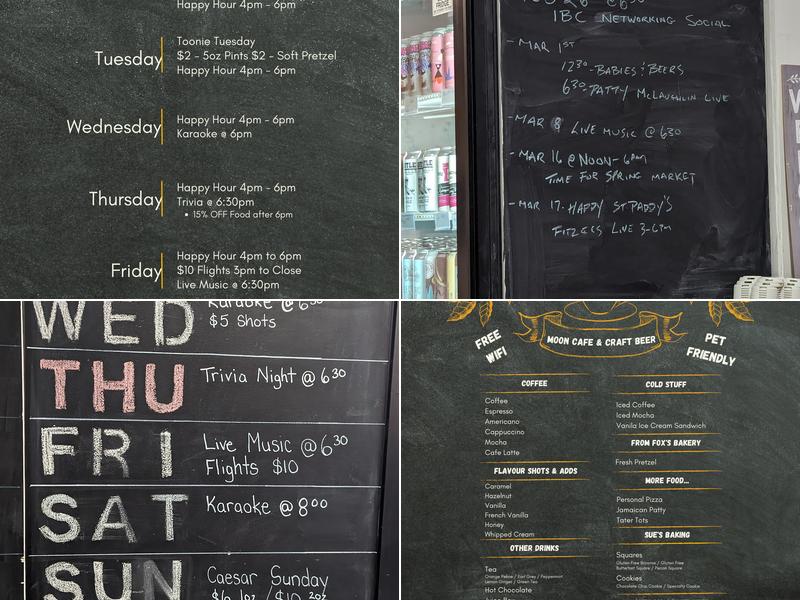 Happy Hour 4pm - 6pm
Tuesday
Toonie Tuesday
$2 - 5oz Pints $2 - Soft Pretzel
Happy Hour 4pm - 6pm
Wednesday
Happy Hour 4pm - 6pm
Karaoke @ 6pm
Thursday
Happy Hour 4pm - 6pm
Trivia @ 6:30pm
• 15% OFF Food after 6pm
Friday
Happy Hour 4pm to 6pm
$10 Flights 3pm to Close
Live Music @ 6:30pm
IBC NETWORKING SOCIAL
- MAR 1ST
1230 - BABIES & BEERS
630 - PATTY McLAUGHLIN LIVE
- MAR 8 LIVE MUSIC @ 630
- MAR 16 @ NOON - 6PM
TIME FOR SPRING MARKET
- MAR 17 - HAPPY ST PADDY'S
LIVE 3-6PM
WED
Karaoke @ 630
$5 Shots
THU
Trivia Night @ 630
FRI
Live Music @ 630
Flights $10
SAT
Karaoke @ 800
SUN
Caesar Sunday
FREE
WIFI
MOON CAFE & CRAFT BEER
PET
FRIENDLY
COFFEE
Coffee
Espresso
Americano
Cappuccino
Mocha
Cafe Latte
FLAVOUR SHOTS & ADDS
Caramel
Hazelnut
Vanilla
French Vanilla
Honey
Whipped Cream
OTHER DRINKS
Tea
Orange Pekoe / Earl Grey / Peppermint
Lemon Ginger / Green Tea
Hot Chocolate
COLD STUFF
Iced Coffee
Iced Mocha
Vanilla Ice Cream Sandwich
FROM FOX'S BAKERY
Fresh Pretzel
MORE FOOD...
Personal Pizza
Jamaican Patty
Tater Tots
SUE'S BAKING
Squares
Gluten Free Brownie / Gluten Free
Butterfart Square / Pecan Square
Cookies
Chocolate Chip Cookie / Specialty Cookie